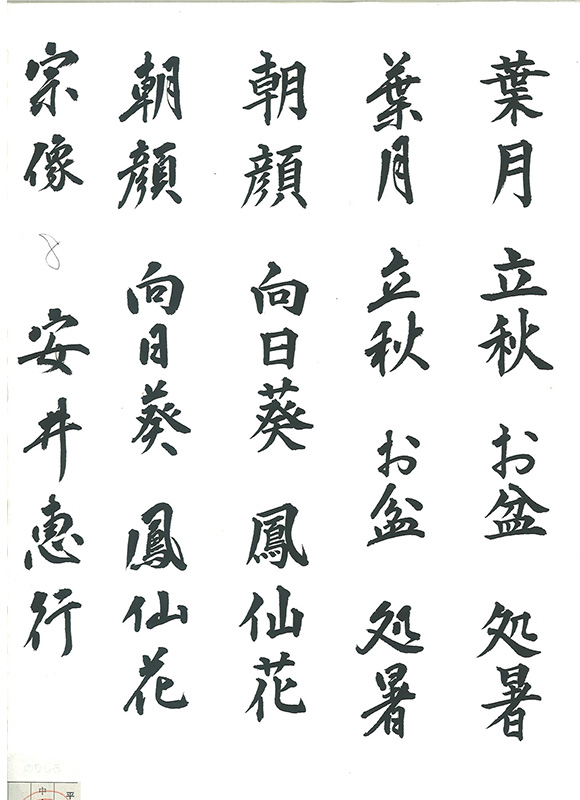 葉月 立秋 お盆 処暑
葉月 立秋 お盆 処暑
朝顔 向日葵 鳳仙花
朝顔 向日葵 鳳仙花
宗像 8 安井恵行
平
中